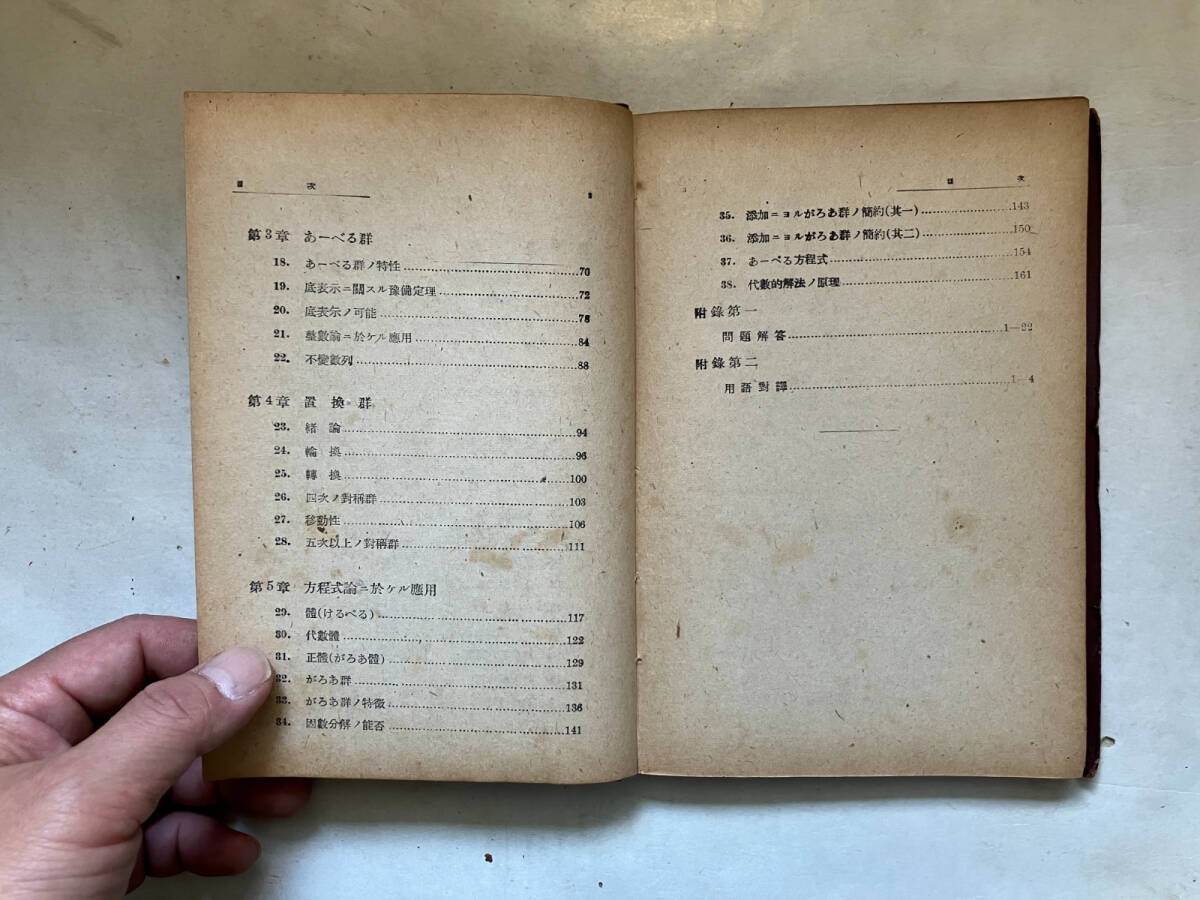 目 次
第3章 あーべる群
18. あーべる群ノ特性 70
19. 底表示ニ關スル豫備定理 72
20. 底表示ノ可能 78
21. 整數論ニ於ケル應用 84
22. 不變數列 88
第4章 置換群
23. 緒論 94
24. 輪換 96
25. 轉換 100
26. 四次ノ對稱群 103
27. 移動性 106
28. 五次以上ノ對稱群 111
第5章 方程式論ニ於ケル應用
29. 體(けるぺる) 117
30. 代數體 122
31. 正體(がろあ體) 129
32. がろあ群 131
33. がろあ群ノ特徵 136
34. 因數分解ノ能否 141
目 次
35. 添加ニヨルがろあ群ノ簡約(其一) 143
36. 添加ニヨルがろあ群ノ簡約(其二) 150
37. あーべる方程式 154
38. 代數的解法ノ原理 161
附錄第一
問題解答 1—22
附錄第二
用語對譯 1—4